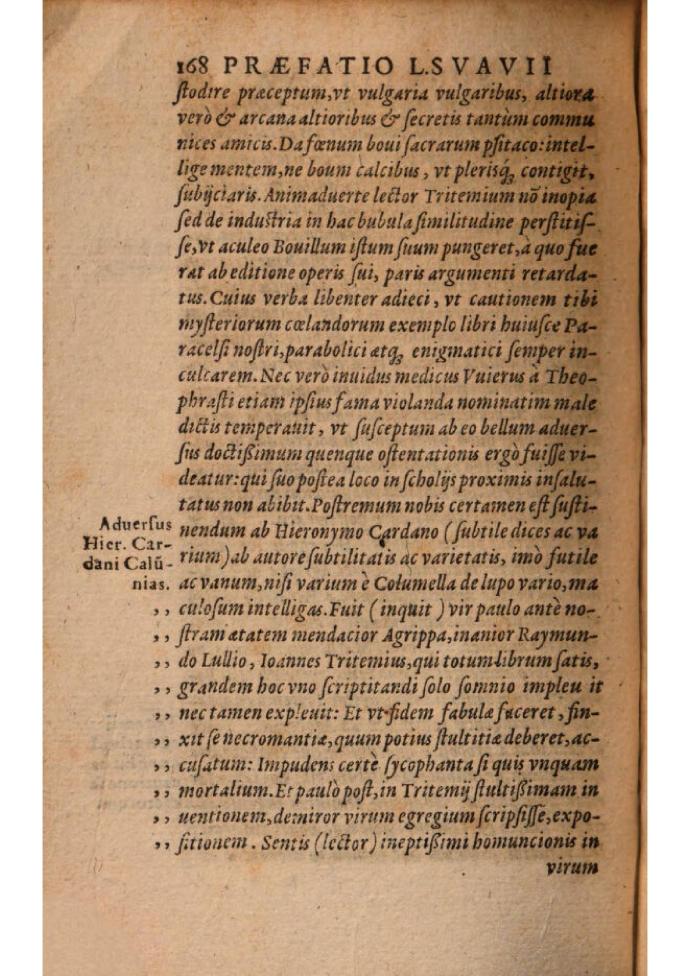 168 PRÆFATIO L.SVAVII
ſtodire præceptum,vt vulgaria vulgaribus, altiora
verò & arcana altioribus & ſecretis tantùm commu
nices amicis.Da fœnum boui ſacrarum pſitaco:intel-
lige mentem,ne boum calcibus, vt pleriſq́ꝫ contigit,
ſubijciaris.Animaduerte lector Tritemium nō inopia
ſed de induſtria in hac bubula ſimilitudine perſtitiſ-
ſe,vt aculeo Bouillum iſtum ſuum pungeret,à quo fue
rat ab editione operis ſui, paris argumenti retarda-
tus.Cuius verba libenter adieci, vt cautionem tibi
myſteriorum cœlandorum exemplo libri huiuſce Pa-
racelſi noſtri,parabolici atqꝫ enigmatici ſemper in-
culcarem.Nec verò inuidus medicus Vuierus à Theo-
phraſti etiam ipſius fama violanda nominatim male
dictis temperauit, vt ſuſceptum ab eo bellum aduer-
ſus doctißimum quenque oſtentationis ergò fuiſſe vi-
deatur:qui ſuo poſtea loco in ſcholijs proximis inſalu-
tatus non abibit.Poſtremum nobis certamen eſt ſuſti-
Aduerſus
Hier. Car-
dani Calū-
nias.
nendum ab Hieronymo Cardano (ſubtile dices ac va
rium)ab autore ſubtilitatis ac varietatis, imò futile
ac vanum,niſi varium è Columella de lupo vario,ma
,, culoſum intelligas.Fuit (inquit) vir paulo antè no-
,, ſtram ætatem mendacior Agrippa,inanior Raymun-
,, do Lullio, Ioannes Tritemius,qui totum librum ſatis,
,, grandem hoc vno ſcriptitandi ſolo ſomnio impleu it
,, nec tamen expleuit: Et vt fidem fabulæ faceret, fin-
,, xit ſe necromantiæ,quum potius ſtultitiæ deberet,ac-
,, cuſatum: Impudens certè ſycophanta ſi quis vnquam
,, mortalium.Et paulò poſt,in Tritemij ſtultißimam in
,, uentionem,demiror virum egregium ſcripſiſſe,expo-
,, ſitionem. Sentis (lector) ineptißimi homuncionis in
virum